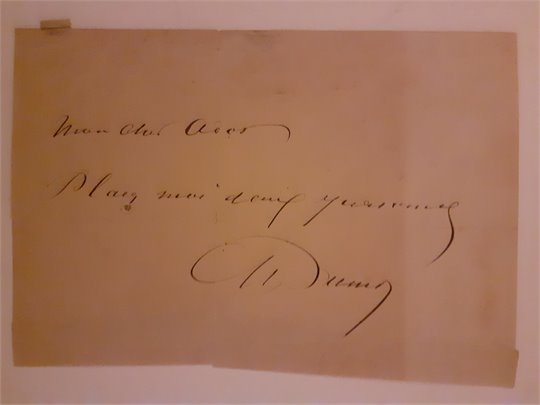 Mon cher
Placez moi deux personnes
A Dumas